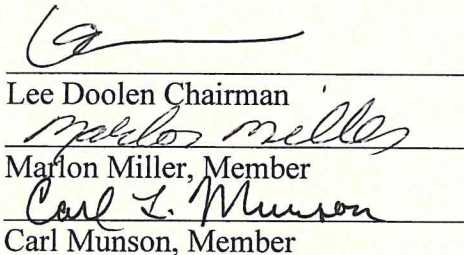 Lee Doolen Chairman
Marlon Miller
Marlon Miller, Member
Carl L. Munson
Carl Munson, Member